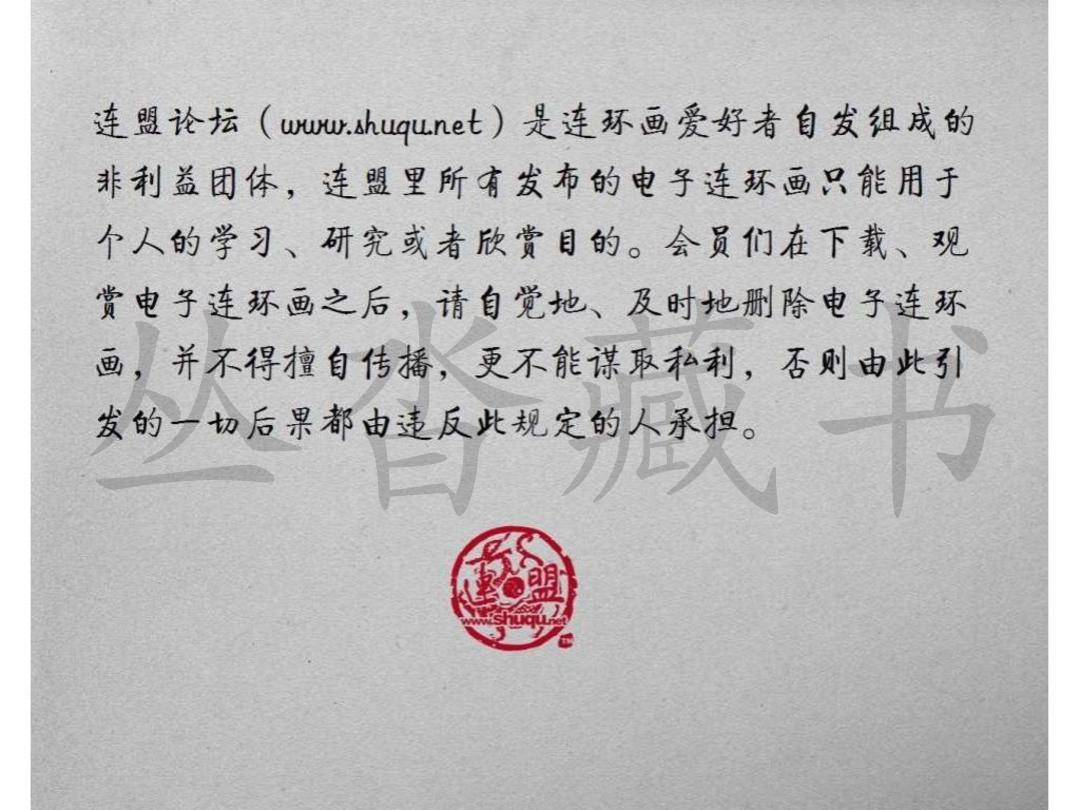 连盟论坛（www.shuqu.net）是连环画爱好者自发组成的
非利益团体，连盟里所有发布的电子连环画只能用于
个人的学习、研究或者欣赏目的。会员们在下载、观
赏电子连环画之后，请自觉地、及时地删除电子连环
画，并不得擅自传播，更不能谋取私利，否则由此引
发的一切后果都由违反此规定的人承担。
丛沓藏书
連盟
www.shuqu.net
TM